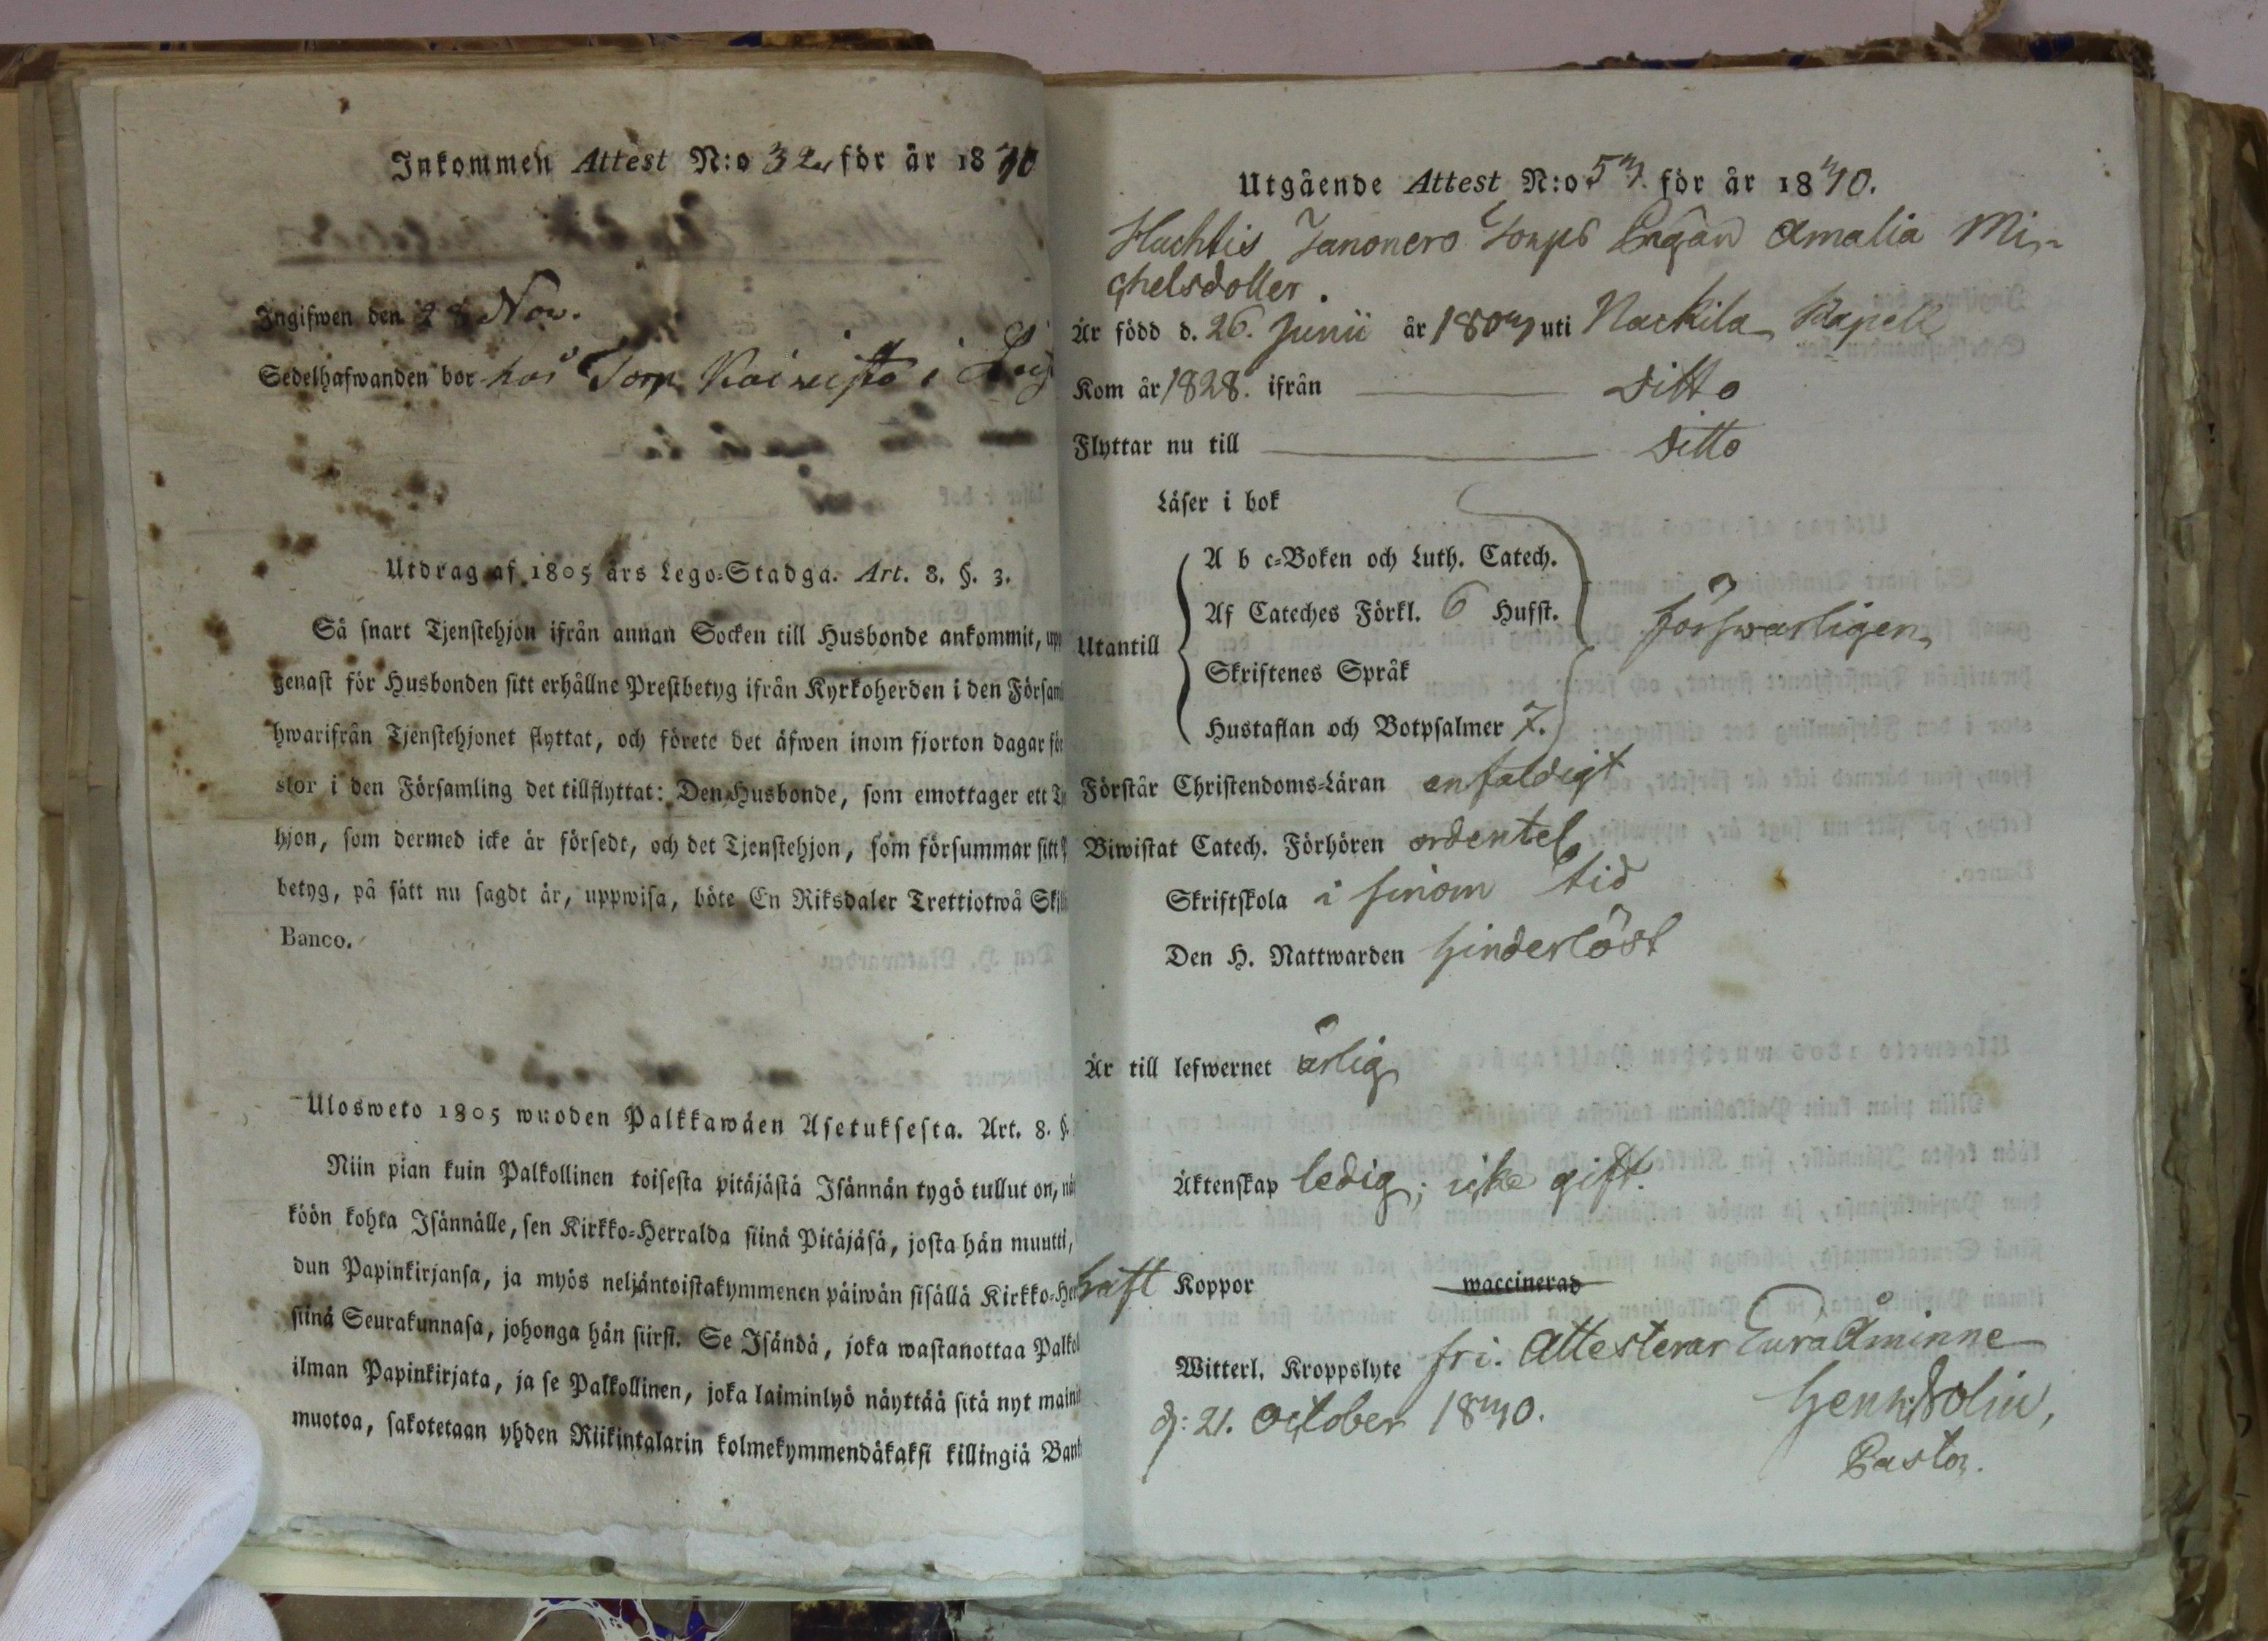 Inkommen Attest N:o 32 för år 1840
Ingifwen den 28 Nov.
Sedelhafwanden bor hos Torp. Koivisto i
Utdrag af 1805 års Lego-Stadga. Art. 8. §. 3.
Så snart Tjenstehjon ifrån annan Socken till Husbonde ankommit, upp
genast för Husbonden sitt erhållne Prestbetyg ifrån Kyrkoherden i den Församl
hwarifrån Tjenstehjonet flyttat, och förete det äfwen inom fjorton dagar för
stor i den Församling det tillflyttat: Den Husbonde, som emottager ett Tj
hjon, som dermed icke är försedt, och det Tjenstehjon, som försummar sitt P
betyg, på sätt nu sagdt är, uppwisa, böte En Riksdaler Trettiotwå Skill
Banco.
Ulosweto 1805 wuoden Palkkawäen Asetuksesta. Art. 8. §.
Niin pian kuin Palkollinen toisesta pitäjästä Isännän tygö tullut on, näy
köön kohta Isännälle, sen Kirkko-Herralda siinä Pitäjäsä, josta hän muutti,
dun Papinkirjansa, ja myös neljäntoistakymmenen päiwän sisällä Kirkko-Her
siinä Seurakunnasa, johonga hän siirsi. Se Isändä, joka wastanottaa Palkol
ilman Papinkirjata, ja se Palkollinen, joka laiminlyö näyttää sitä nyt mainit
muotoa, sakotetaan yhden Riikintalarin kolmekymmendäkaksi killingiä Banko
Utgående Attest N:o 54. för år 1840.
Huchtis Torps Pigan Amalia Mi-
chelsdotter.
Är född d. 26. Junii år 1804 uti Nackila Kapell
Kom år 1828. ifrån Ditto
Flyttar nu till Ditto
Läser i bok
A b c-Boken och Luth. Catech.
Af Cateches Förkl. 6 Hufst.
Utantill försvarligen
Skriftenes Språk
Hustaflan och Botpsalmer 7.
Förstår Christendoms-Läran enfaldigt
Biwistat Catech. Förhören ordentel.
Skriftskola i sinom tid
Den H. Nattwarden hinderlöst
Är till lefwernet ärlig
Äktenskap ledig; icke gift.
haft Koppor waccinerad
Witterl. Kroppslyte fri. Attesterar Eura Åminne
d: 21. October 1840. Henr. Nolin,
Pastor.